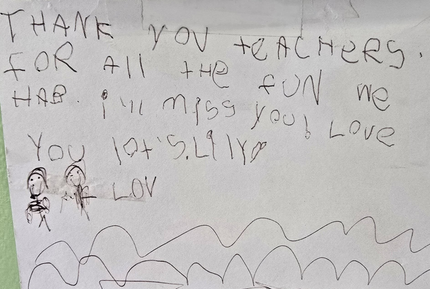 THANK YOU teACHeRS.
FOR All tHe FUN We
HAB. i'll miss you! LOVe
YOU lot's. Lilly
LOV